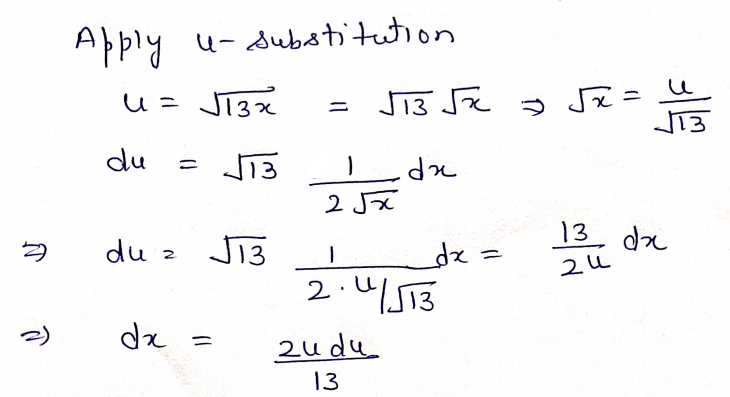 Apply u-substitution
u = √13x = √13 √x ⇒ √x = u/√13
du = √13 1/(2√x) dx
⇒ du = √13 1/(2·u/√13) dx = 13/(2u) dx
⇒ dx = 2u du/13